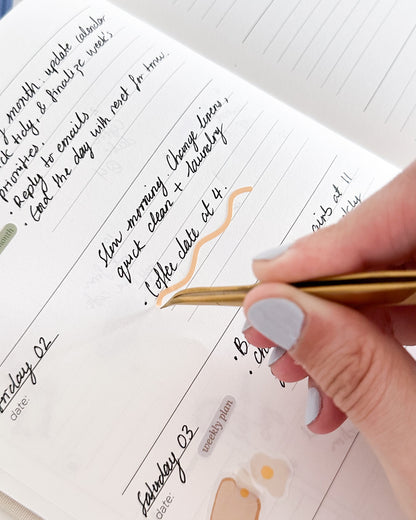 month: update calendar
tidy, & finalize week's
priorities.
• Reply to emails
End the day with reset for tmrw.
month
Slow morning. Change linens,
quick clean + laundry
• Coffee date at 4.
at 11
02
date:
weekly plan
Saturday 03
date: